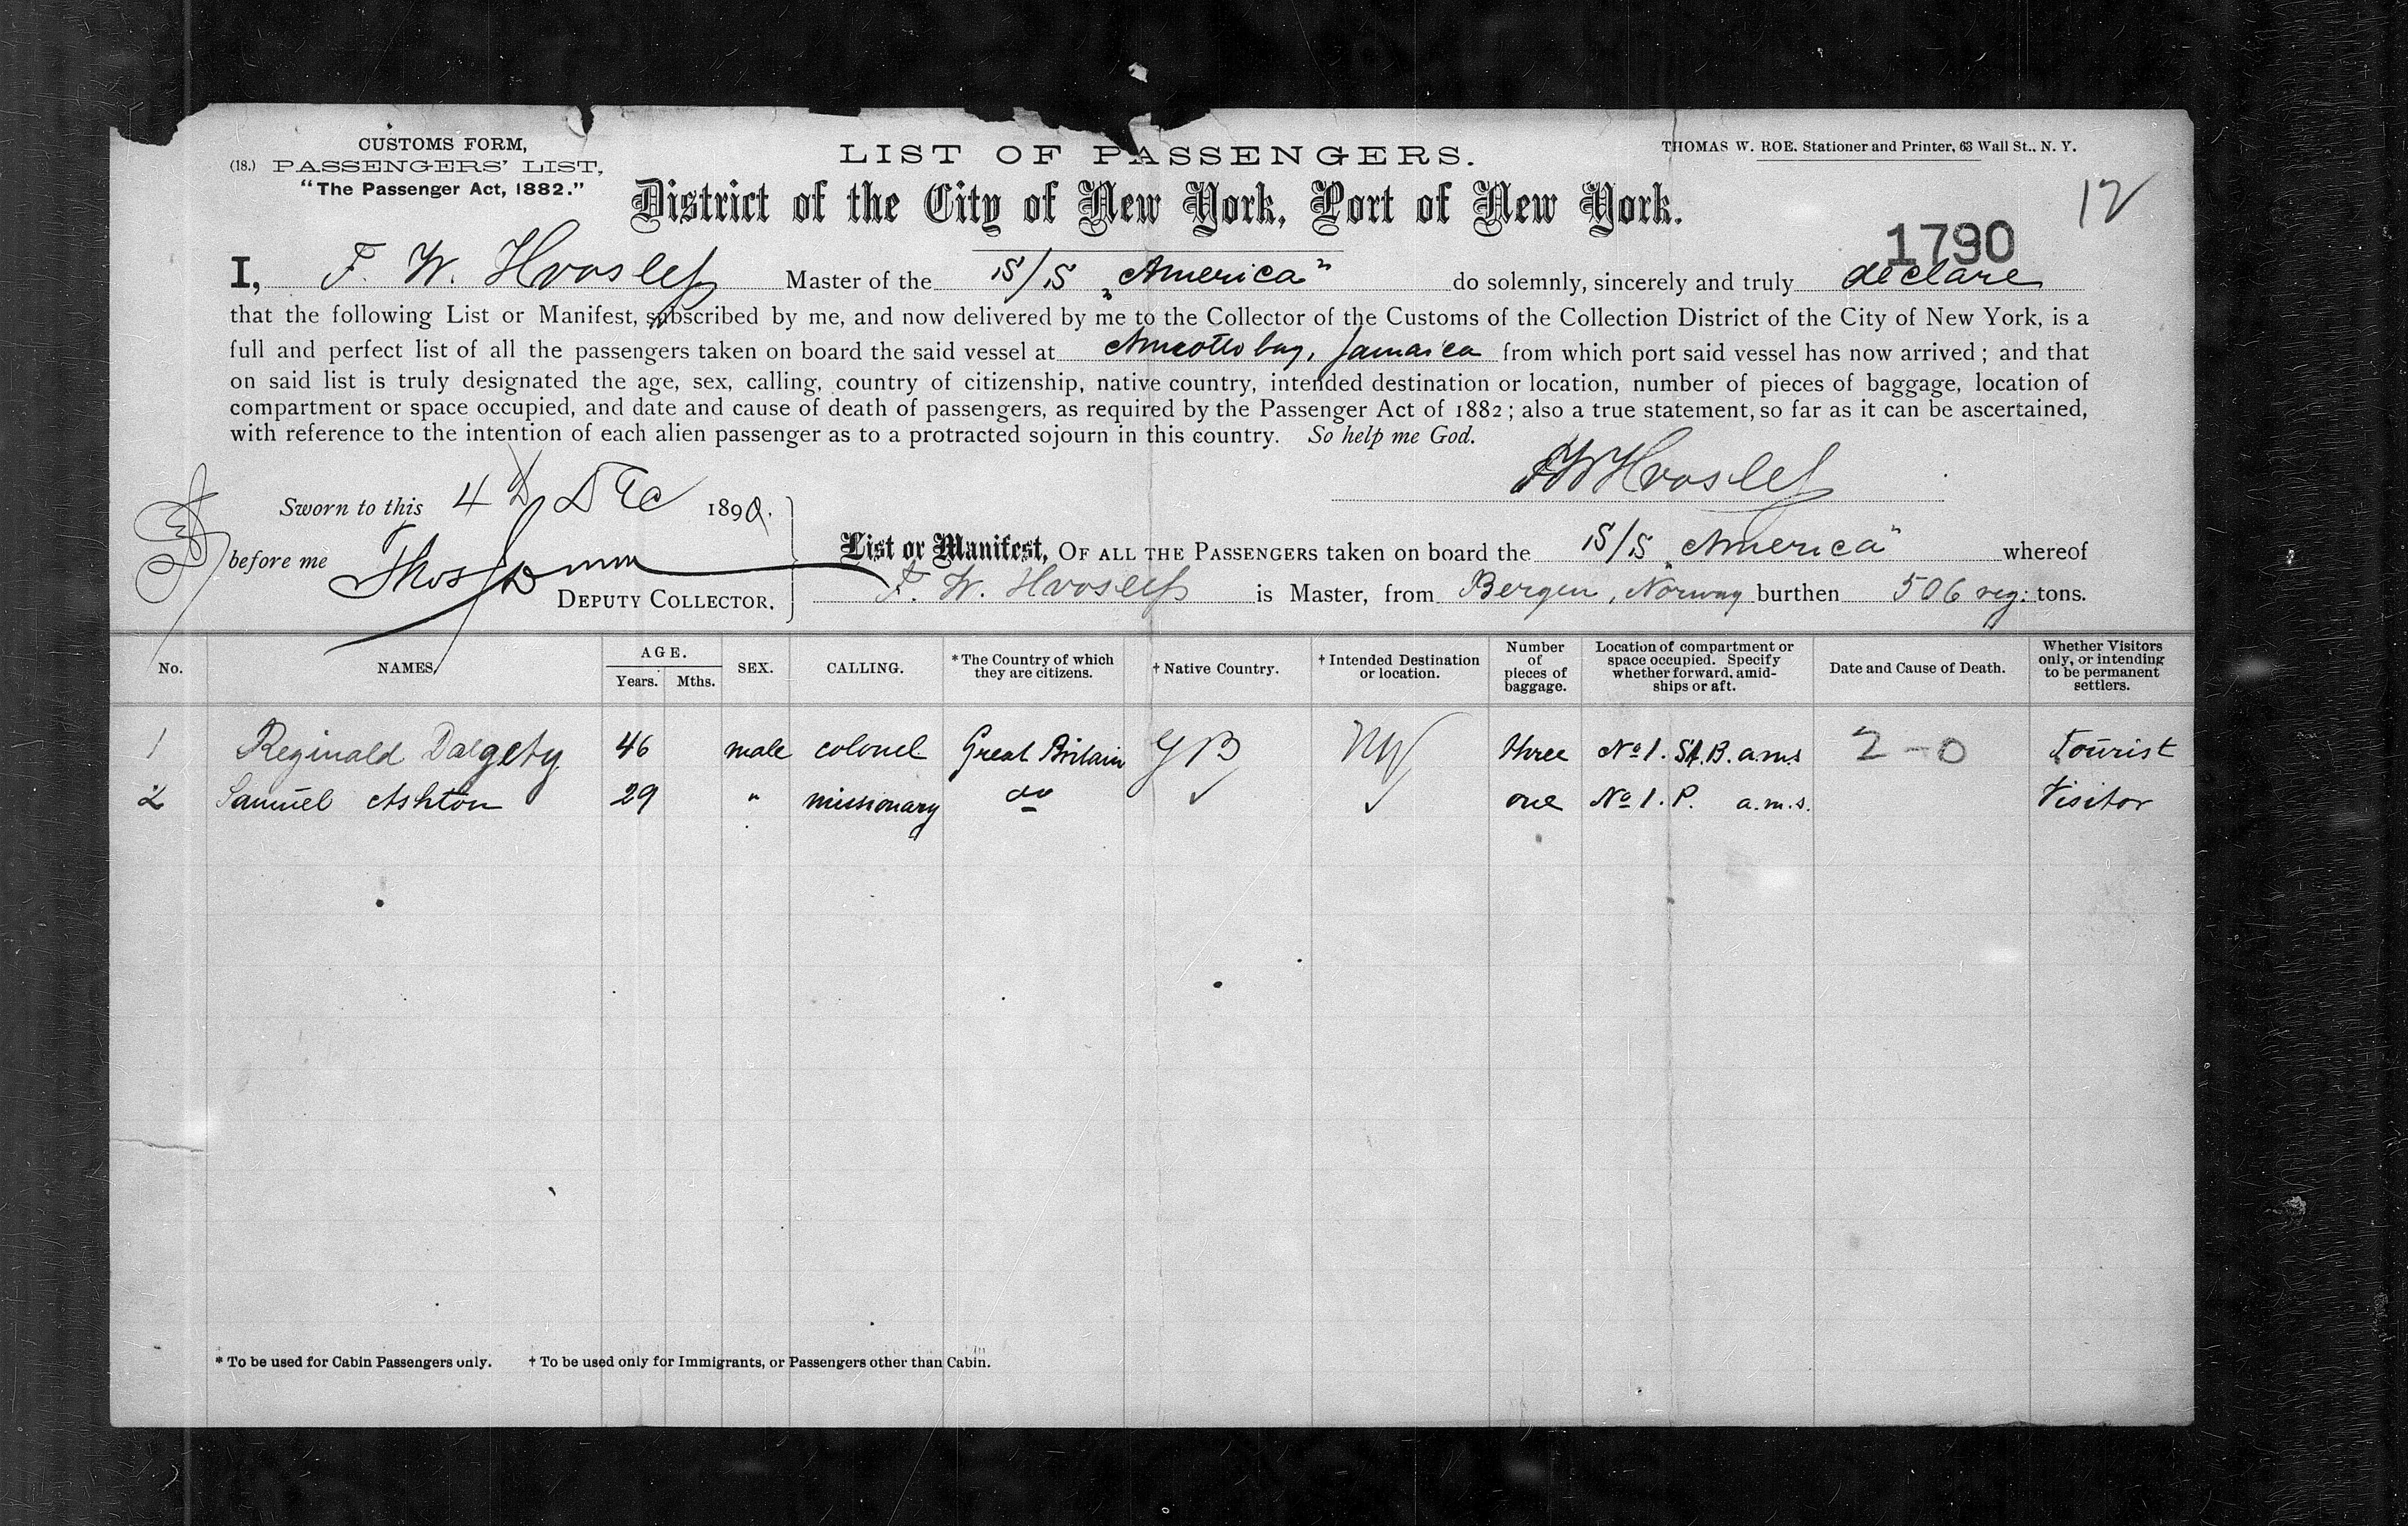 CUSTOMS FORM,
(18.) PASSENGERS' LIST,
"The Passenger Act, 1882."
LIST OF PASSENGERS.
THOMAS W. ROE. Stationer and Printer, 63 Wall St., N. Y.
District of the City of New York, Port of New York.
12
1790
I, F. W. Hvoslef Master of the S/S "America" do solemnly, sincerely and truly declare
that the following List or Manifest, subscribed by me, and now delivered by me to the Collector of the Customs of the Collection District of the City of New York, is a
full and perfect list of all the passengers taken on board the said vessel at Annotto bay, Jamaica from which port said vessel has now arrived; and that
on said list is truly designated the age, sex, calling, country of citizenship, native country, intended destination or location, number of pieces of baggage, location of
compartment or space occupied, and date and cause of death of passengers, as required by the Passenger Act of 1882; also a true statement, so far as it can be ascertained,
with reference to the intention of each alien passenger as to a protracted sojourn in this country. So help me God.
FW Hvoslef
Sworn to this 4th Dec 1890.
before me Thos
DEPUTY COLLECTOR.
List or Manifest, OF ALL THE PASSENGERS taken on board the S/S "America" whereof
F. W. Hvoslef is Master, from Bergen, Norway burthen 506 reg: tons.
No. NAMES. AGE. Years. Mths. SEX. CALLING. * The Country of which they are citizens. † Native Country. † Intended Destination or location. Number of pieces of baggage. Location of compartment or space occupied. Specify whether forward, amidships or aft. Date and Cause of Death. Whether Visitors only, or intending to be permanent settlers.
1 Reginald Dalgety 46 male colonel Great Britain GB NY three No 1. St. B. a.m.s 2-0 Tourist
2 Samuel Ashton 29 " missionary do ✓ ✓ one No 1. P. a.m.s. Visitor
* To be used for Cabin Passengers only. † To be used only for Immigrants, or Passengers other than Cabin.